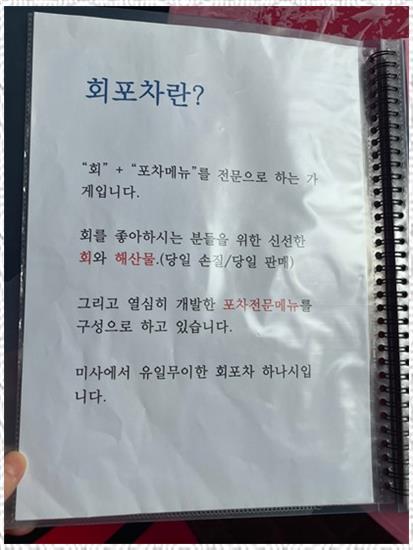 회포차란?
“회” + “포차메뉴”를 전문으로 하는 가
게입니다.
회를 좋아하시는 분들을 위한 신선한
회와 해산물.(당일 손질/당일 판매)
그리고 열심히 개발한 포차전문메뉴를
구성으로 하고 있습니다.
미사에서 유일무이한 회포차 하나시입
니다.